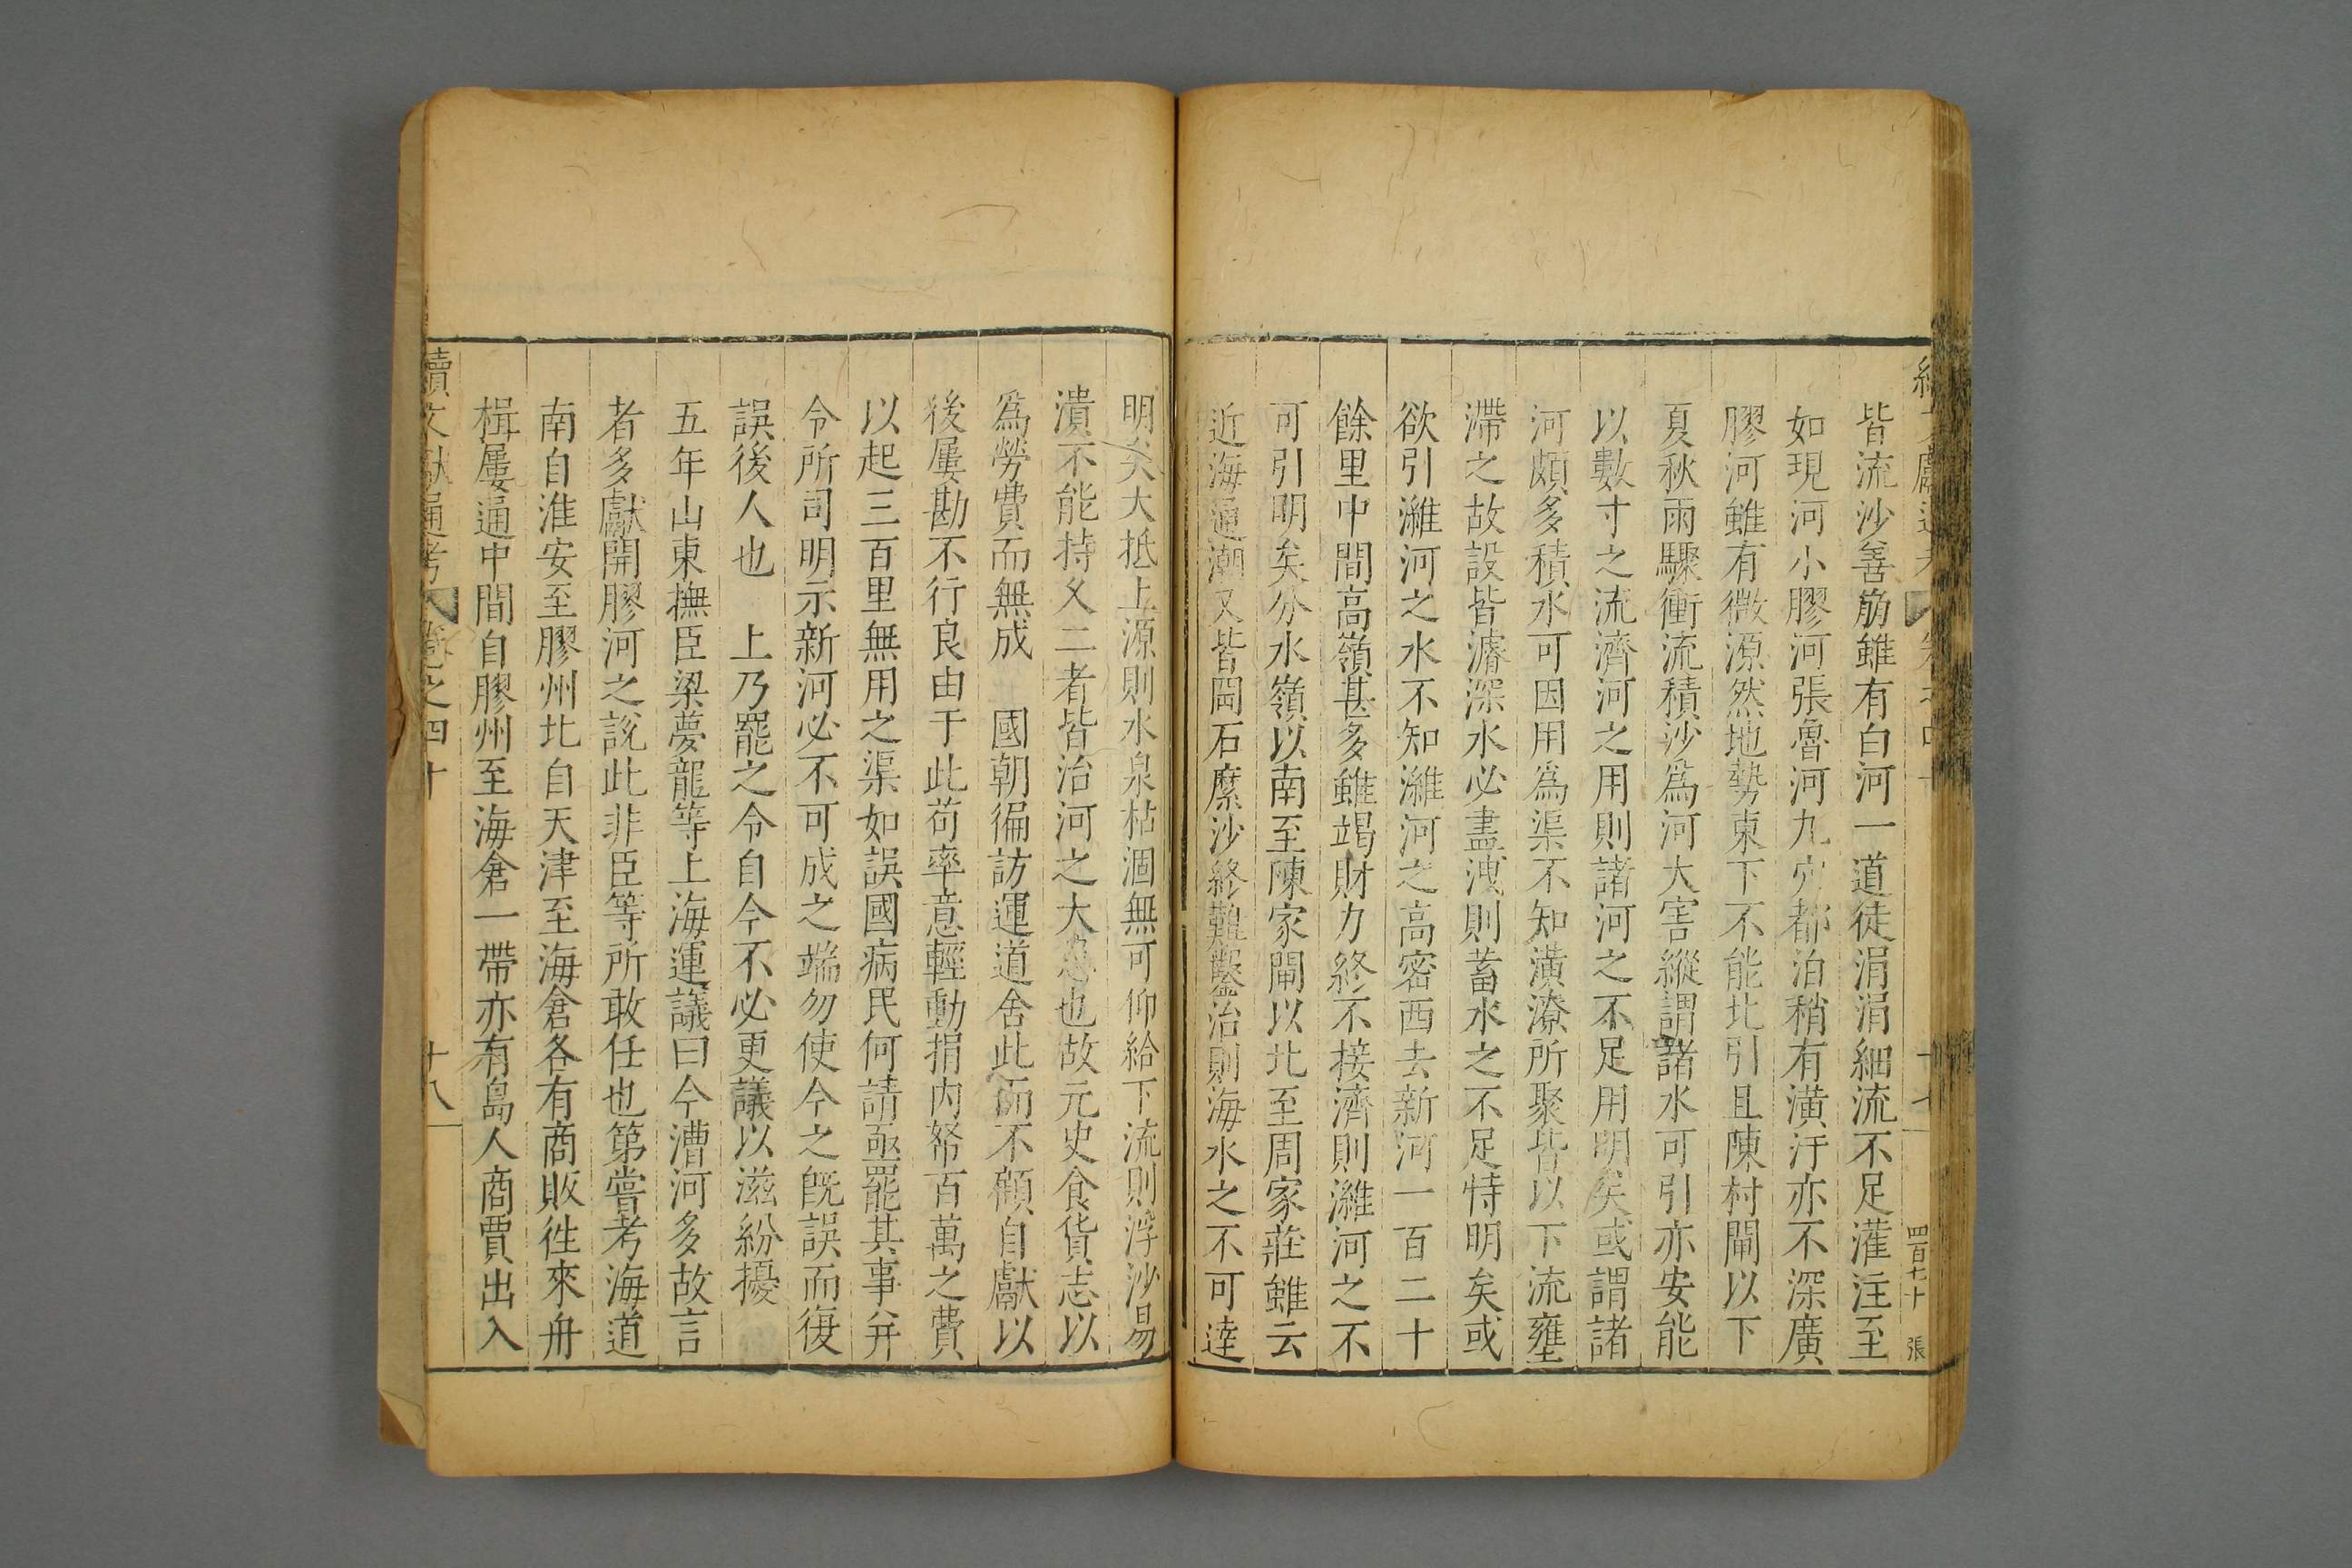 皆流沙善崩雖有白河一道徒涓涓細流不足灌注至
如現河小膠河張魯河九穴都泊稍有潢汙亦不深廣
膠河雖有微源然地勢東下不能北引且陳村閘以下
夏秋雨驟衝流積沙為河大害縱謂諸水可引亦安能
以數寸之流濟河之用則諸河之不足用明矣或謂諸
河頗多積水可因用為渠不知潢潦所聚皆以下流壅
滯之故設皆濬深水必盡洩則蓄水之不足恃明矣或
欲引濰河之水不知濰河之高密西去新河一百二十
餘里中間高嶺甚多雖竭財力終不接濟則濰河之不
可引明矣分水嶺以南至陳家閘以北至周家莊雖云
近海通潮又皆岡石糜沙終難鑿治則海水之不可達
明矣大抵上源則水泉枯涸無可仰給下流則浮沙易
潰不能持久二者皆治河之大也故元史食貨志以
為勞費而無成 國朝徧訪運道舍此而不顧自獻以
後屢勘不行良由于此苟率意輕動捐內帑百萬之費
以起三百里無用之渠如誤國病民何請亟罷其事并
令所司明示新河必不可成之端勿使今之既誤而復
誤後人也 上乃罷之令自今不必更議以滋紛擾
五年山東撫臣梁夢龍等上海運議曰今漕河多故言
者多獻開膠河之說此非臣等所敢任也第嘗考海道
南自淮安至膠州北自天津至海倉各有商販徃來舟
楫屢通中間自膠州至海倉一帶亦有島人商賈出入
續文獻通考 卷之四十 十八